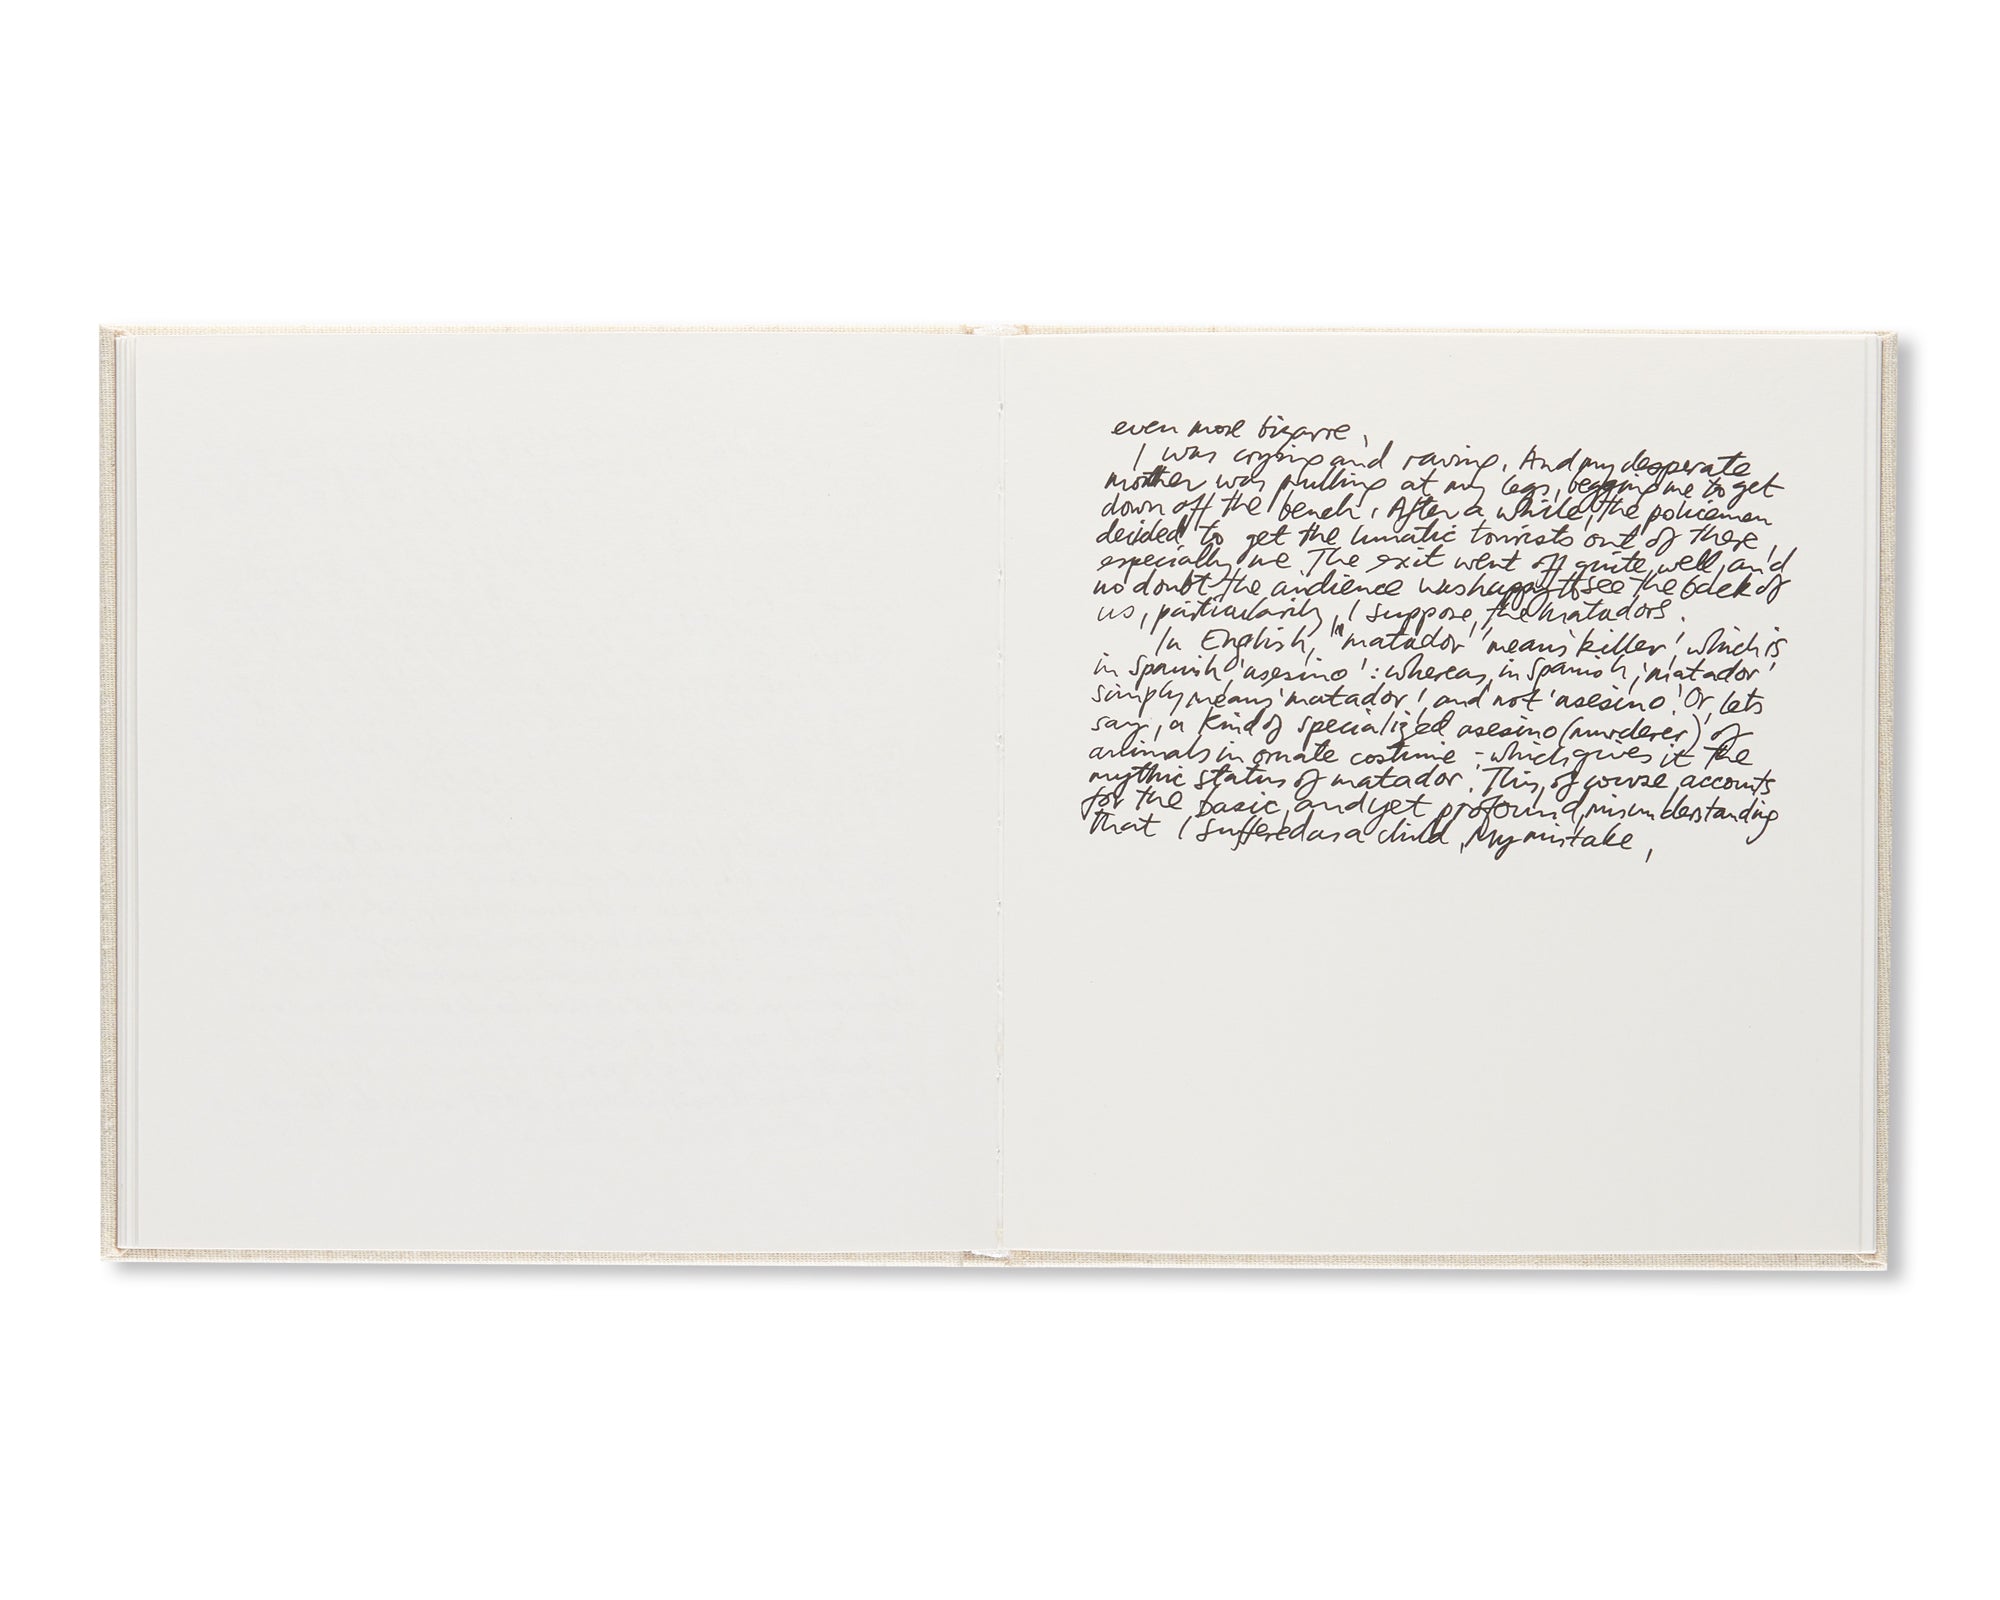 even more bizarre.
I was crying and raving. And my desperate
mother was pulling at my legs, begging me to get
down off the bench. After a while, the policemen
decided to get the lunatic tourists out of there,
especially me. The exit went off quite well, and
no doubt the audience was happy to see the back of
us, particularily, I suppose, the matadors.
In English, 'matador' means 'killer', which is
in Spanish 'asesino': whereas, in Spanish, 'matador'
simply means 'matador', and not 'asesino'. Or, lets
say, a kind of specialized asesino (murderer) of
animals in ornate costume - which gives it the
mythic status of matador. This, of course, accounts
for the basic, and yet profound, misunderstanding
that I suffered as a child. My mistake,